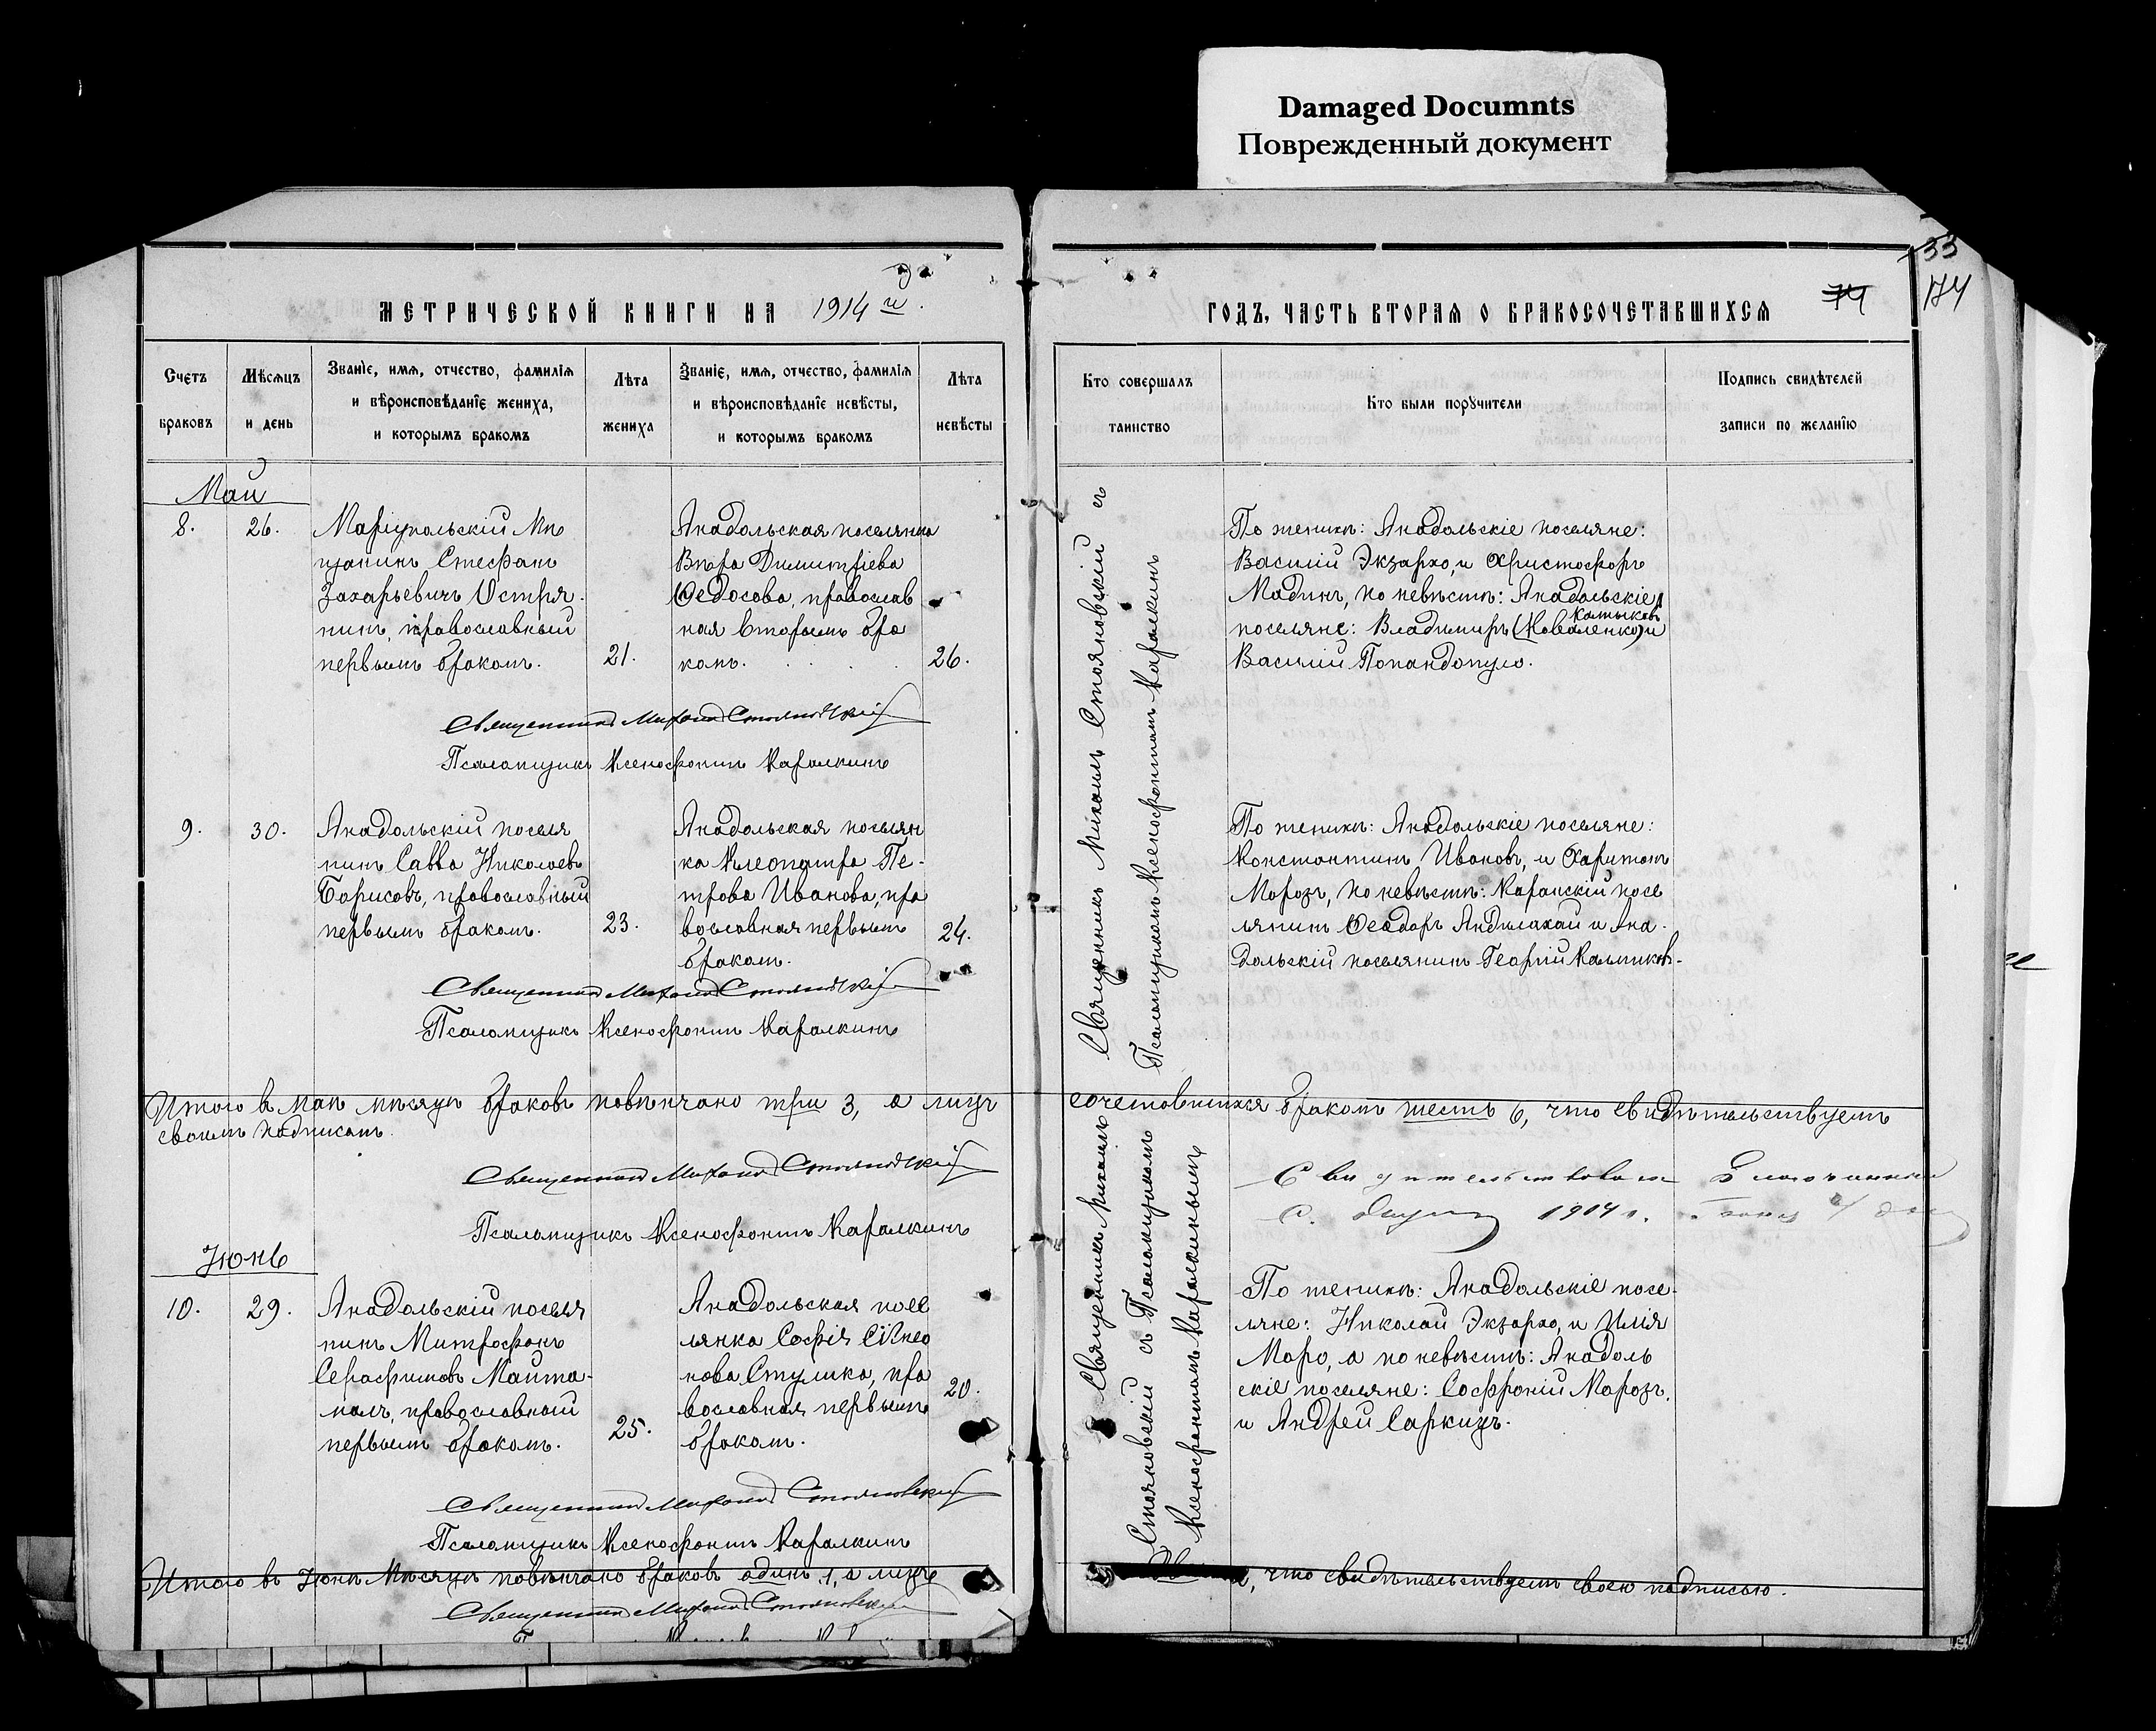 Damaged Documnts
Поврежденный документ
33
174
74
МЕТРИЧЕСКОЙ КНИГИ НА 1914 й.
ГОДЪ, ЧАСТЬ ВТОРАЯ О БРАКОСОЧЕТАВШИХСЯ
Счетъ браковъ
Мѣсяцъ и день
Званіе, имя, отчество, фамилія
и вѣроисповѣданіе жениха,
и которымъ бракомъ
Лѣта жениха
Званіе, имя, отчество, фамилія
и вѣроисповѣданіе невѣсты,
и которымъ бракомъ
Лѣта невѣсты
Кто совершалъ таинство
Кто были поручители
Подпись свидѣтелей
записи по желанію
Май
8.
26.
Маріупольскій Мѣ
щанинъ Стефанъ
Захарьевичъ Остря-
нинъ, православный
первымъ бракомъ.
21.
Анадольская поселянка
Вѣра Димитріева
Ѳедосова, православ
ная вторымъ бра
комъ.
26.
Священникъ Михаилъ Стояновскій съ
Псаломщикомъ Ксенофонтомъ Каралкинъ
По женихѣ: Анадольскіе поселяне:
Василій Экзархо, и Христофоръ
Мадинъ, по невѣстѣ: Анадольскіе
поселяне: Владимиръ (Коваленко) и
Калмыковъ
Василій Попандопуло.
Священникъ Михаилъ Стояновскій
Псаломщикъ Ксенофонтъ Каралкинъ
9.
30.
Анадольскій поселя
нинъ Савва Николаевъ
Борисовъ, православный
первымъ бракомъ.
23.
Анадольская поселян
ка Клеопатра Пе-
трова Иванова, пра
вославная первымъ
бракомъ.
24.
По женихѣ: Анадольскіе поселяне:
Константинъ Ивановъ, и Харитонъ
Морозъ, по невѣстѣ: Каранскій посе
лянинъ Ѳеодоръ Андилахай и Ана-
дольскій поселянинъ Георгій Калмыковъ.
Священникъ Михаилъ Стояновскій
Псаломщикъ Ксенофонтъ Каралкинъ
Итого въ Маѣ мѣсяцѣ браковъ повѣнчано три 3, а лицъ сочетовшихся бракомъ шесть 6, что свидѣтельствуемъ
своимъ подписомъ.
Священникъ Михаилъ Стояновскій
Псаломщикъ Ксенофонтъ Каралкинъ
Свидѣтельствовалъ Благочинный
1914 г.
Іюнь
10.
29.
Анадольскій поселя
нинъ Митрофанъ
Серафимовъ Майта-
малъ, православный
первымъ бракомъ.
25.
Анадольская посе
лянка Софія Симео
нова Стулика, пра
вославная первымъ
бракомъ.
20.
Священникъ Михаилъ
Стояновскій съ Псаломщикомъ
Ксенофонтомъ Каралкинымъ
По женихѣ: Анадольскіе посе-
ляне: Николай Экзархо, и Илія
Маро, а по невѣстѣ: Анадоль
скіе поселяне: Софроній Морозъ,
и Андрей Саркизъ.
Священникъ Михаилъ Стояновскій
Псаломщикъ Ксенофонтъ Каралкинъ
Итого въ Іюнѣ Мѣсяцѣ повѣнчано браковъ одинъ 1, а лицъ
, что свидѣтельствуемъ своею подписью.
Священникъ Михаилъ Стояновскій